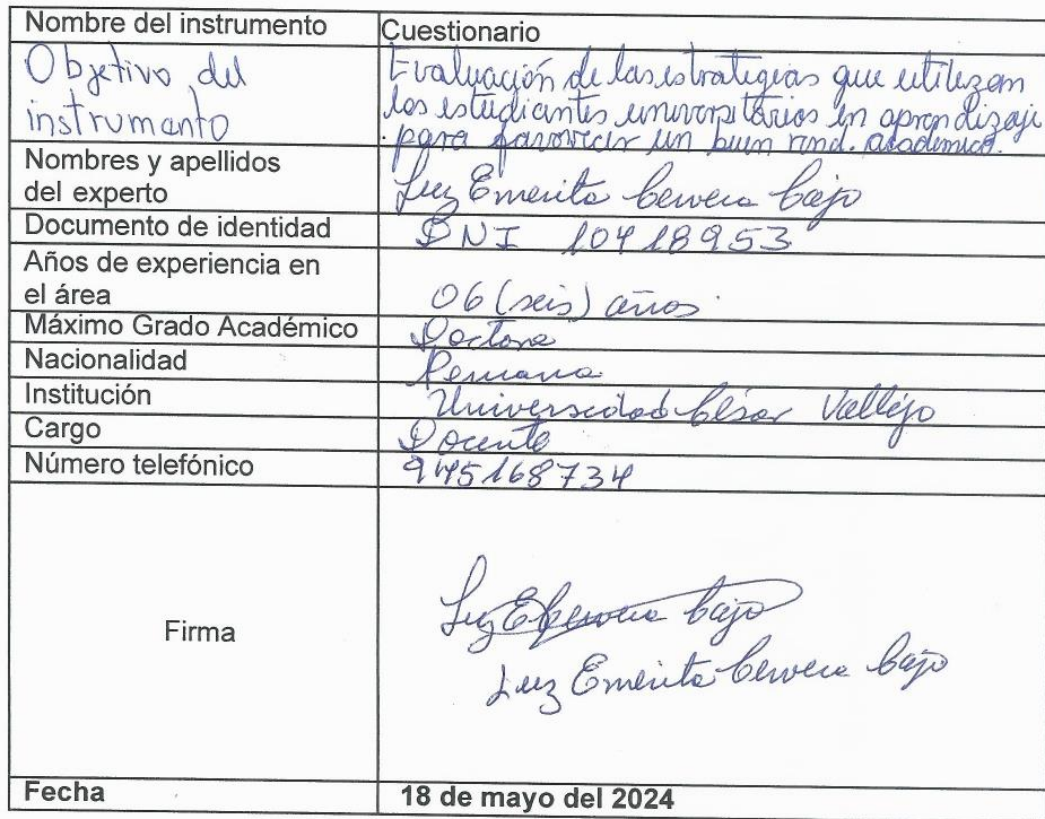 Nombre del instrumento Cuestionario
Objetivo del instrumento
Evaluación de las estrategias que utilizan
los estudiantes universitarios en aprendizaje
para favorecer un buen rend. académico.
Nombres y apellidos
del experto
Luz Emerita Cervera Cajo
Documento de identidad DNI 10418953
Años de experiencia en
el área
06 (seis) años.
Máximo Grado Académico Doctora
Nacionalidad Peruana
Institución Universidad César Vallejo
Cargo Docente
Número telefónico 945168734
Firma
Luz E Cervera Cajo
Luz Emerita Cervera Cajo
Fecha 18 de mayo del 2024